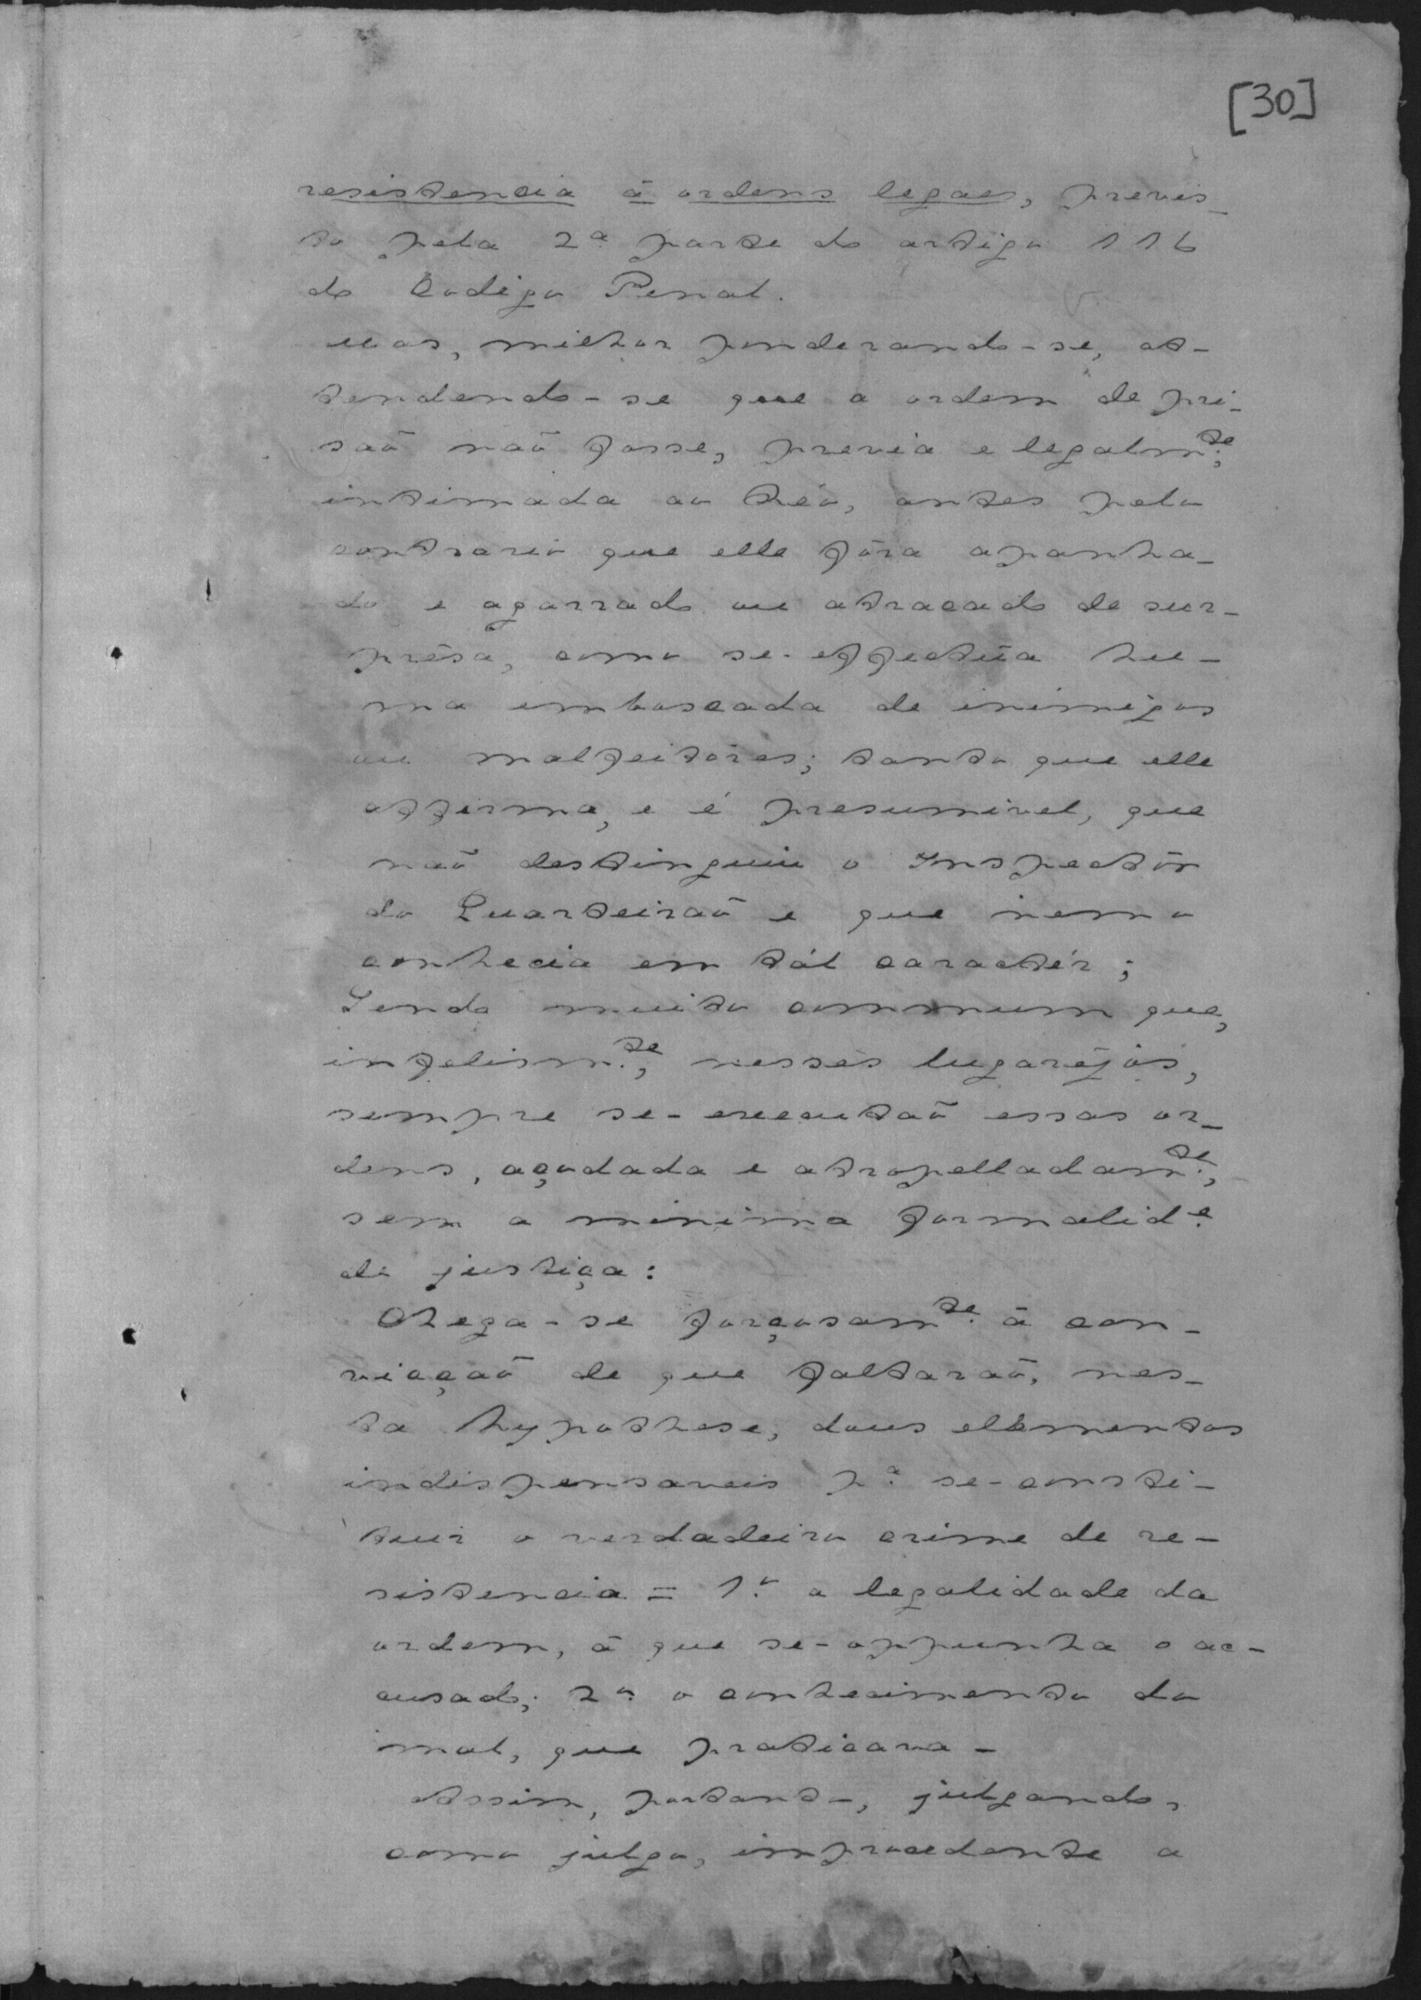 [30]
resistencia á ordens legaes, previs-
to pela 2ª parte do artigo 116
do Codigo Penal.
Mas, milhor ponderando-se, at-
tendendo-se que a ordem de pri-
saõ naõ fosse, previa e legalm.te,
intimada ao Réo, antes pelo
contrario que elle fôra apanha-
do e agarrado ou atracado de sur-
prêsa, como se-effectúa hu-
ma emboscada de inimigos
ou malfeitores; tanto que elle
affirma, e é presumivel, que
naõ destinguiu o Inspectôr
do Quarteiraõ e que nem o
conhecia em tál caractér;
Sendo muito commum que,
infelism.te, nesses lugaréjos,
sempre se-executaõ essas or-
dens, açodada e atropelladam.te,
sem a minima formalid.e
de justiça:
Chega-se forçosam.te á con-
vicçaõ de que faltaraõ, nes-
ta hypothese, dous elementos
indispensaveis p.a se-consti-
tuir o verdadeiro crime de re-
sistencia = 1.º a legalidade da
ordem, á que se-oppunha o ac-
cusado; 2º o conhecimento do
mal, que praticava -
Assim, portanto, julgando,
como julgo, improcedente a